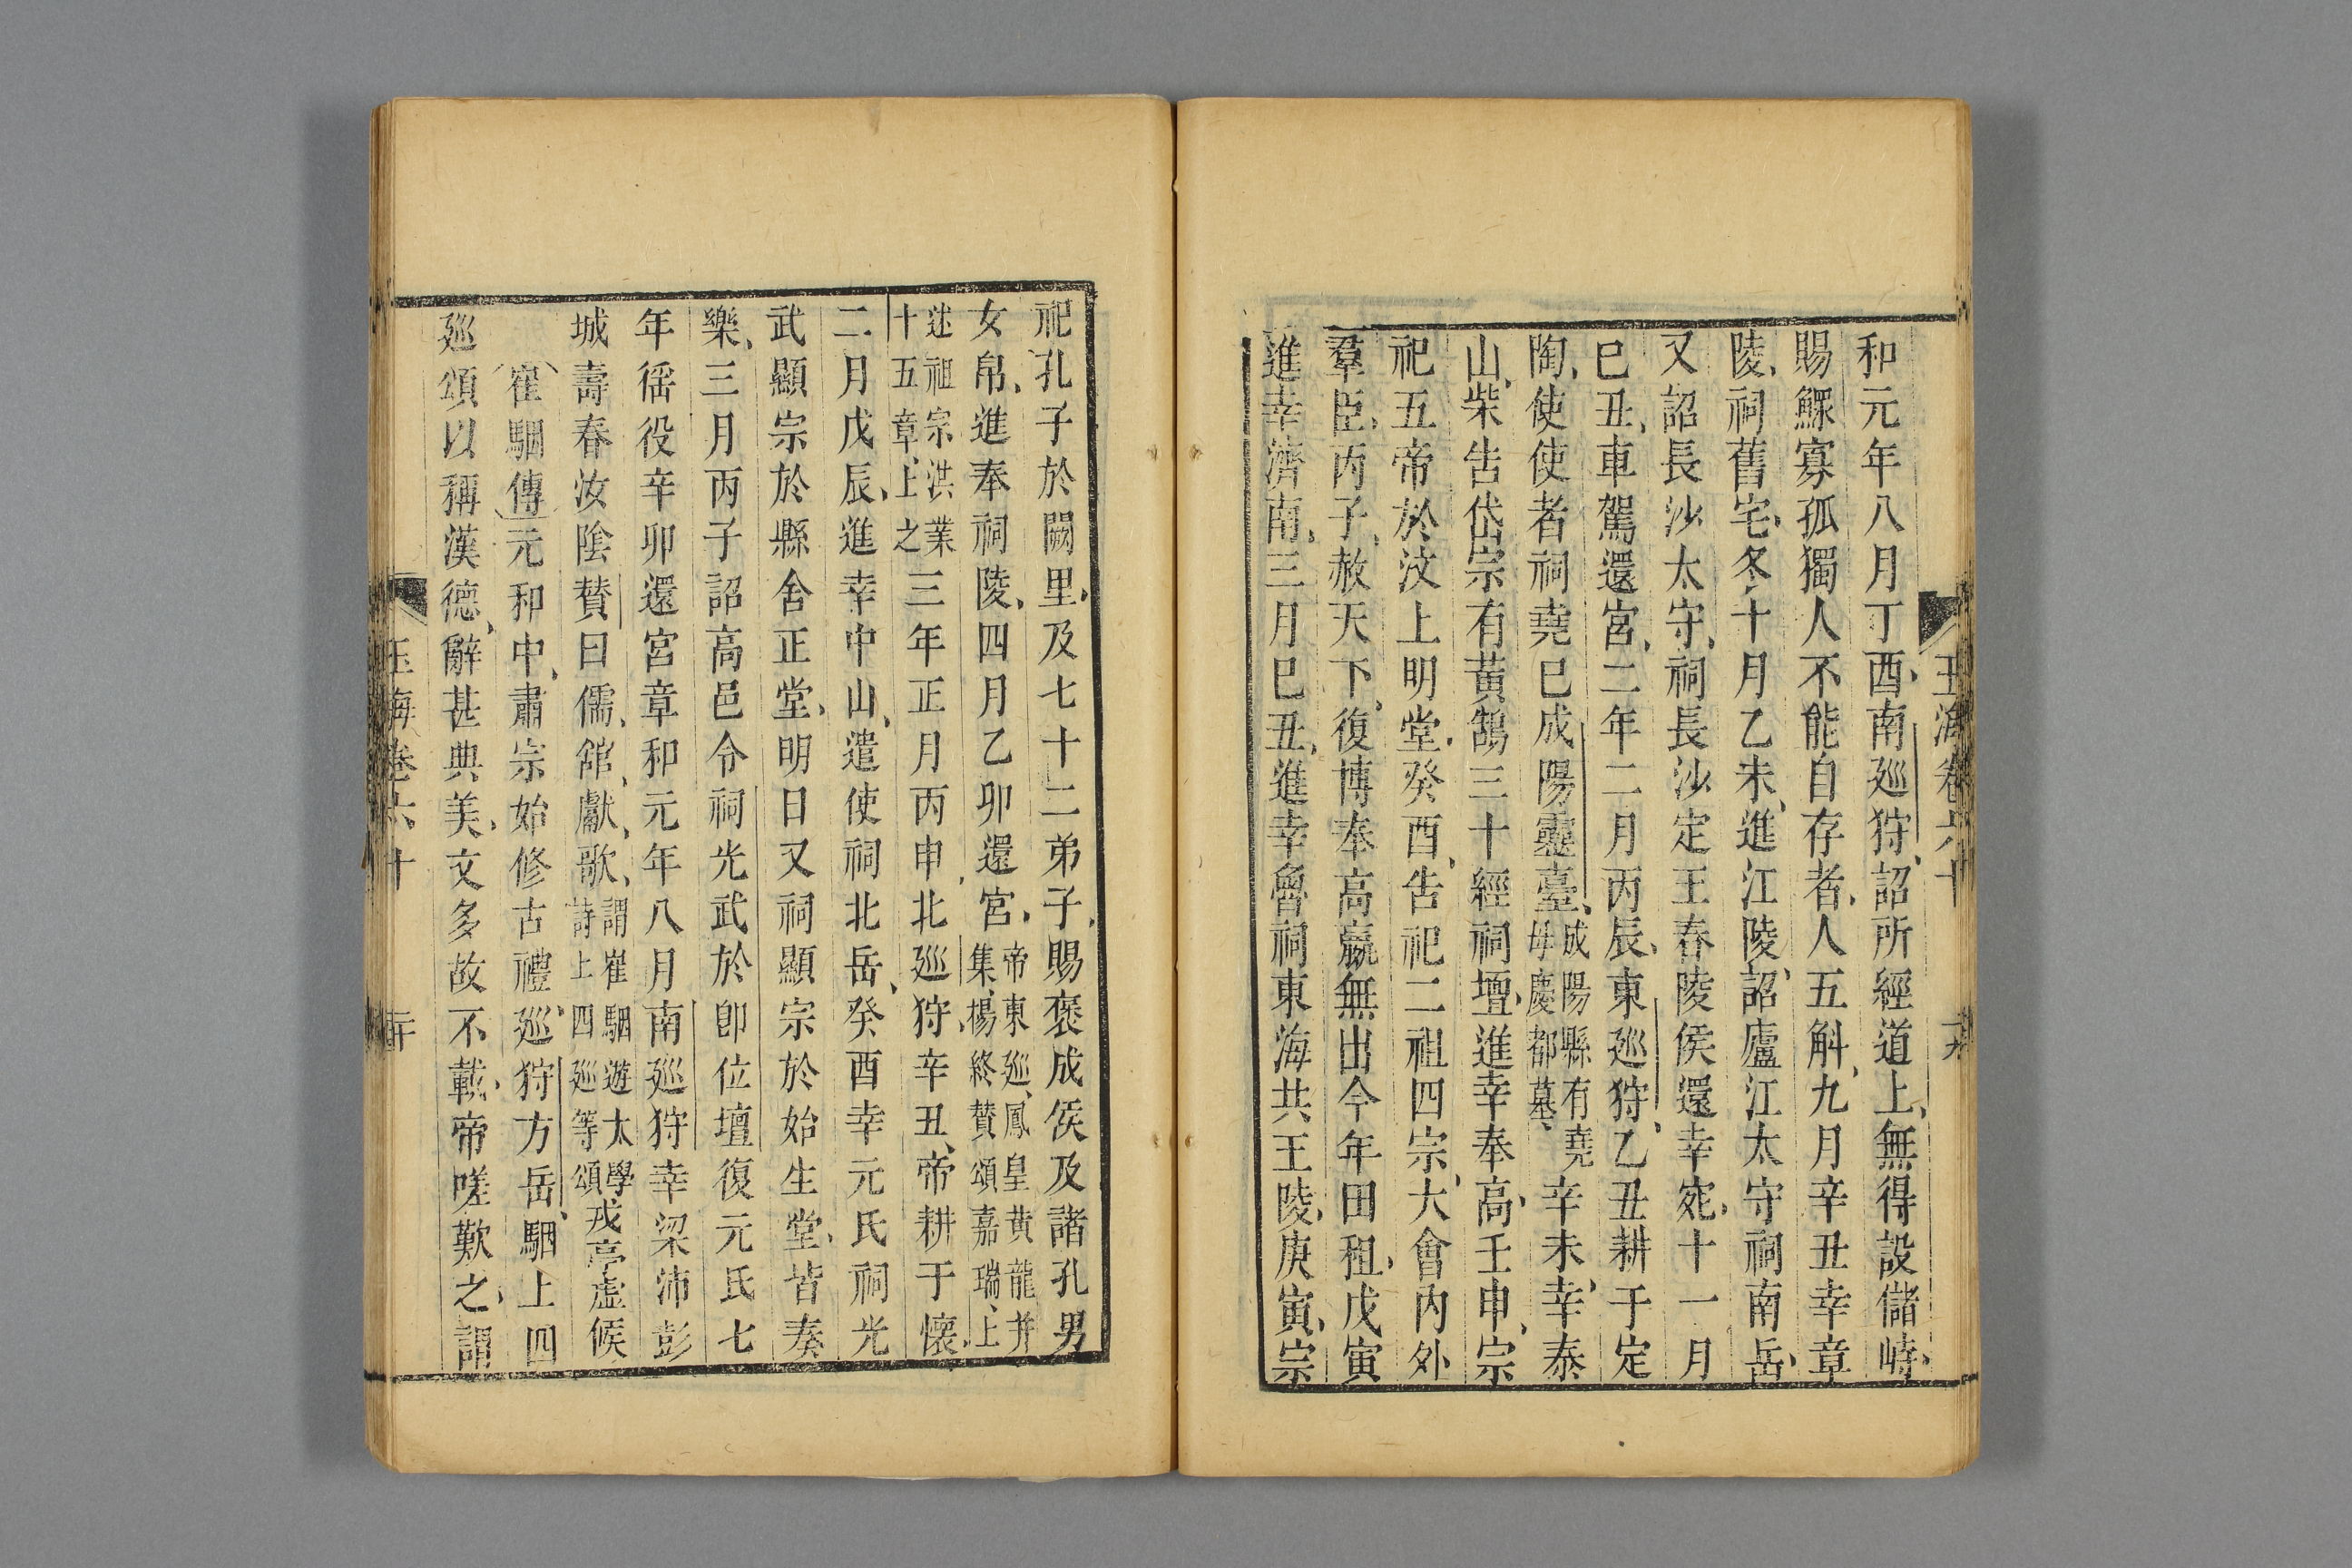 玉海卷六十
十九
和元年八月丁酉南廵狩詔所經道上無得設儲峙
賜鰥寡孤獨人不能自存者人五斛九月辛丑幸章
陵祠舊宅冬十月乙未進江陵詔廬江太守祠南岳
又詔長沙太守祠長沙定王舂陵侯還幸宛十一月
巳丑車駕還宮二年二月丙辰東廵狩乙丑耕于定
陶使使者祠堯巳成陽靈臺成陽縣有堯母慶都墓辛未幸泰
山柴告岱宗有黃鵠三十經祠壇進幸奉高壬申宗
祀五帝於汶上明堂癸酉告祀二祖四宗大會內外
羣臣丙子赦天下復博奉高嬴無出今年田租戊寅
進幸濟南三月巳丑進幸魯祠東海共王陵庚寅宗
祀孔子於闕里及七十二弟子賜褒成侯及諸孔男
女帛進奉祠陵四月乙卯還宮帝東廵鳳皇黃龍并集楊終贊頌嘉瑞上
述祖宗洪業十五章上之三年正月丙申北廵狩辛丑帝耕于懷
二月戊辰進幸中山遣使祠北岳癸酉幸元氏祠光
武顯宗於縣舍正堂明日又祠顯宗於始生堂皆奏
樂三月丙子詔高邑令祠光武於卽位壇復元氏七
年徭役辛卯還宮章和元年八月南廵狩幸梁沛彭
城壽春汝陰贊曰儒館獻歌謂崔駰遊太學詩上四廵等頌戎亭虛候
崔駰傳元和中肅宗始修古禮廵狩方岳駰上四
廵頌以稱漢德辭甚典美文多故不載帝嗟歎之謂
玉海卷六十
二十